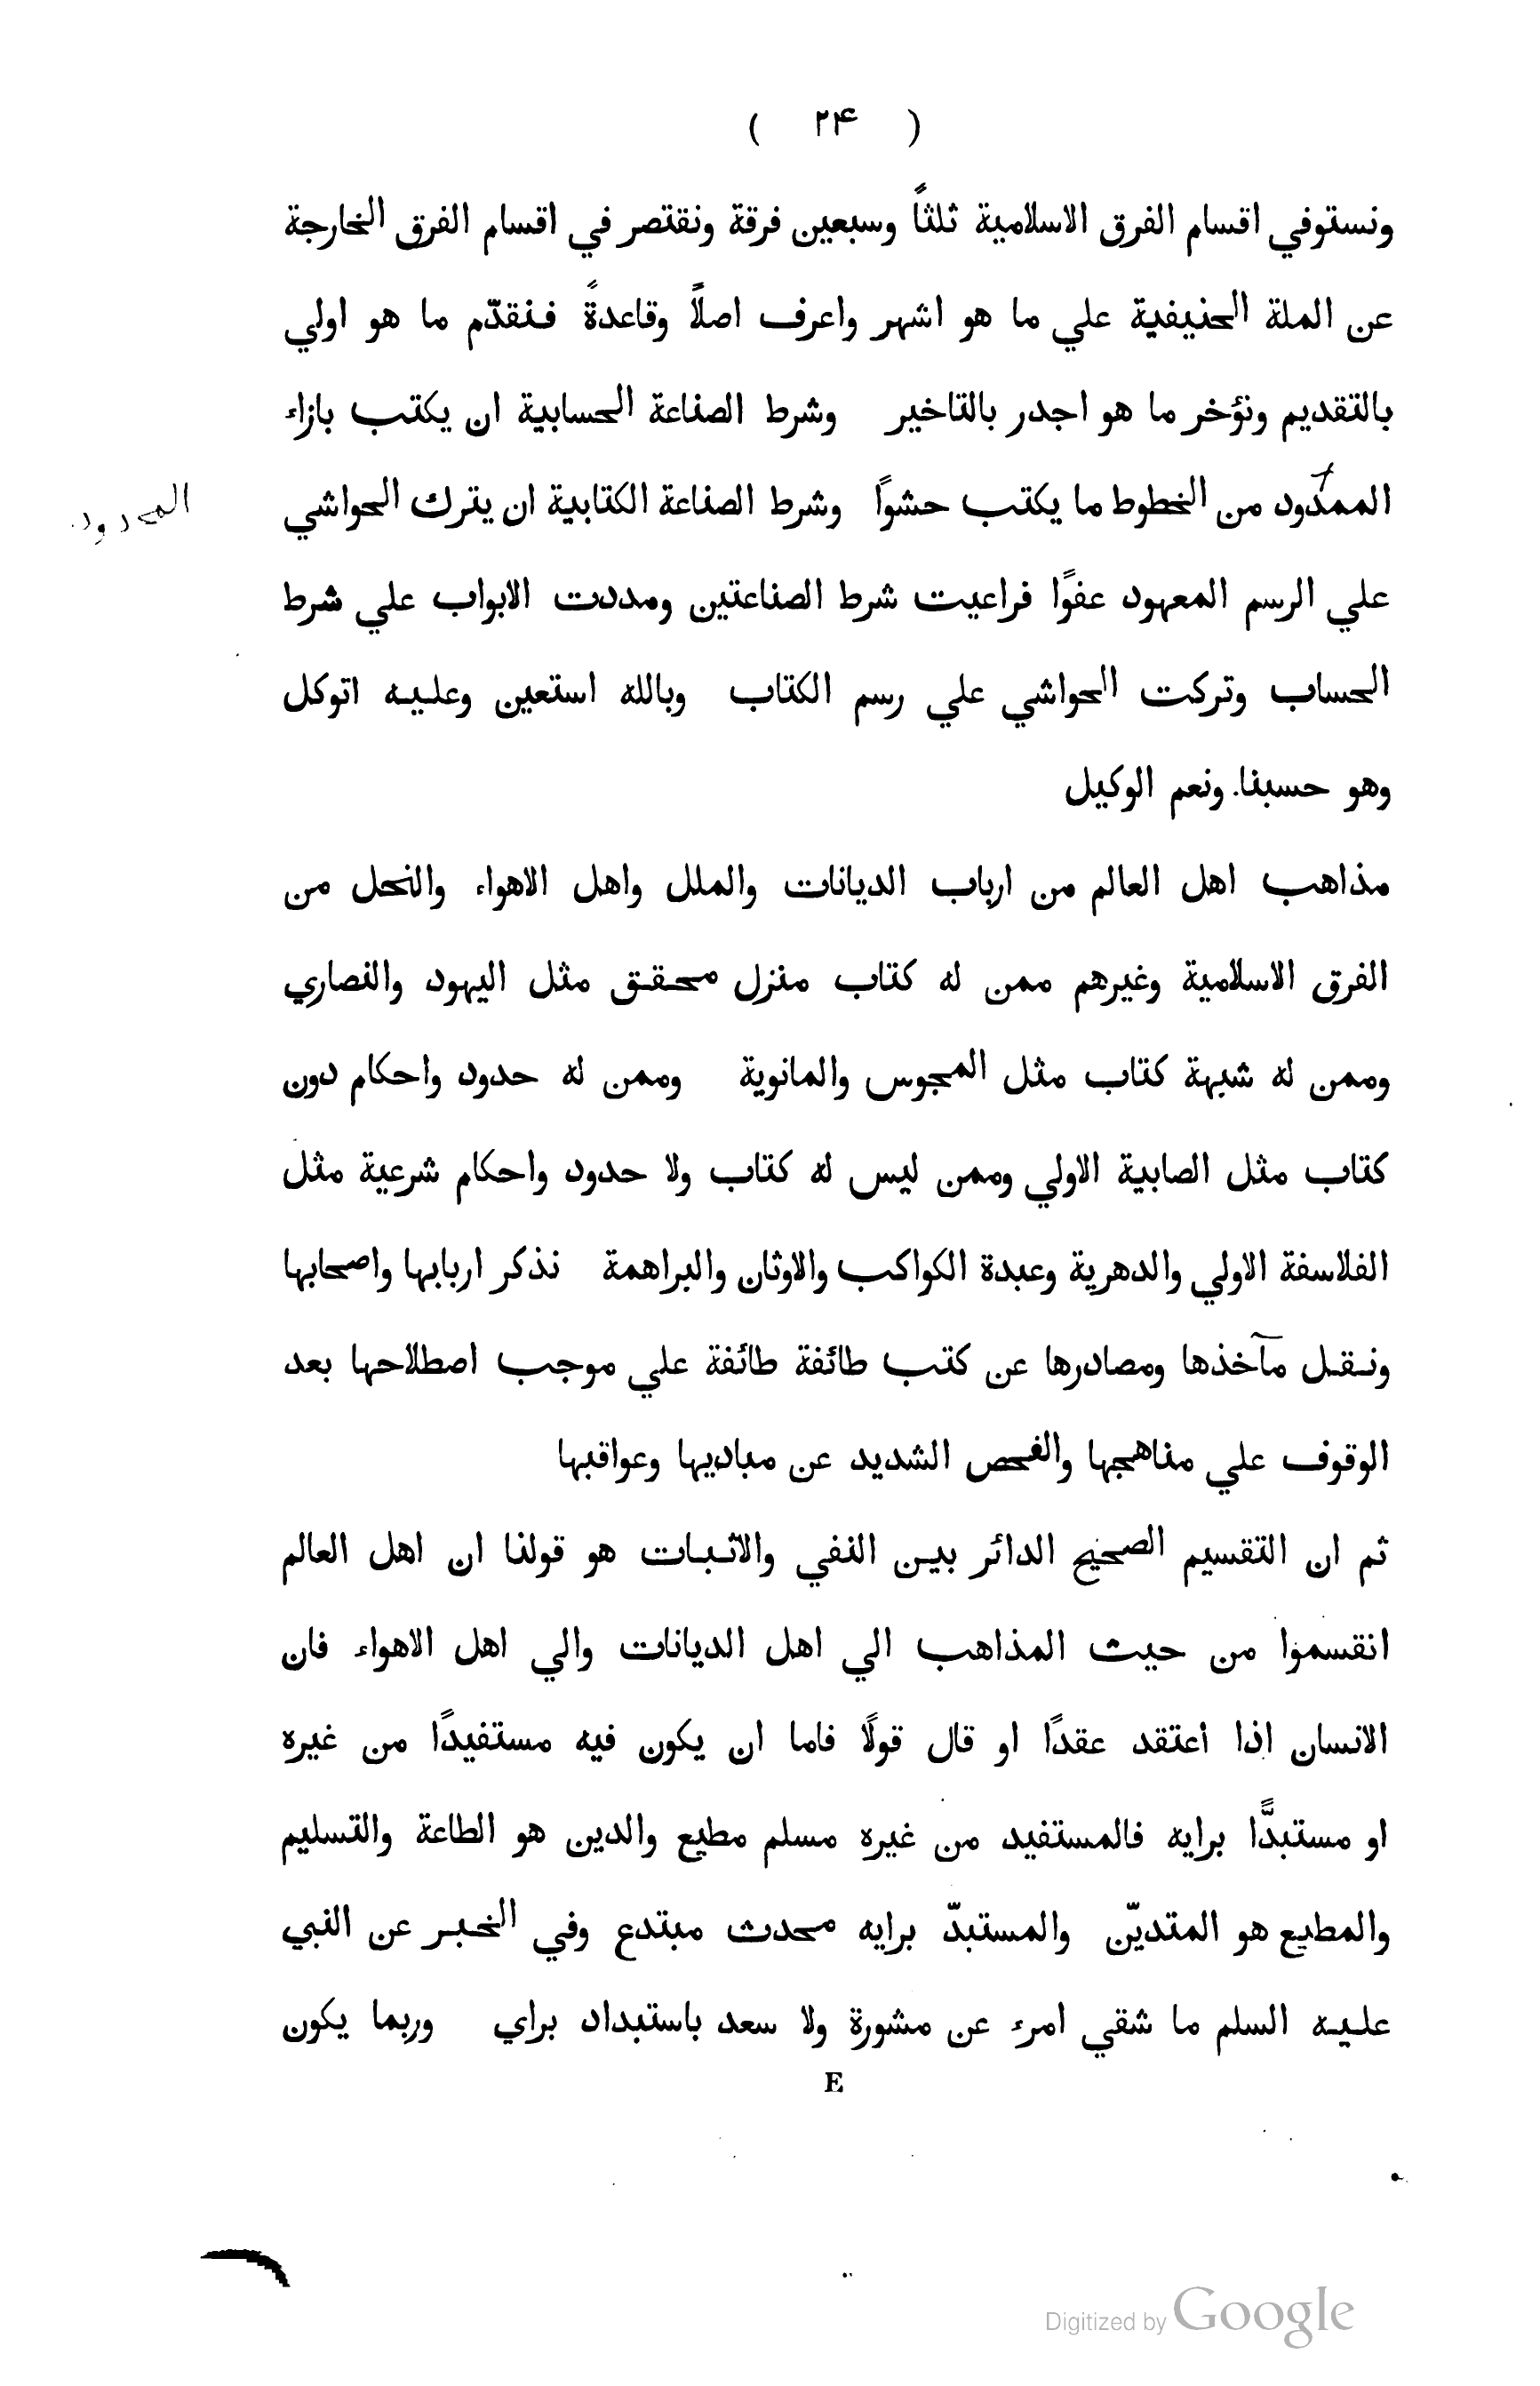 ( ۲۴ )
ونستوفي اقسام الفرق الاسلامية ثلثاً وسبعين فرقة ونقتصر في اقسام الفرق الخارجة
عن الملة الحنيفية علي ما هو اشهر واعرف اصلاً وقاعدةً فنقدّم ما هو اولي
بالتقديم ونؤخر ما هو اجدر بالتاخير وشرط الصناعة الحسابية ان يكتب بازاء
الممدُود من الخطوط ما يكتب حشواً وشرط الصناعة الكتابية ان يترك الحواشي
المحدود
علي الرسم المعهود عفواً فراعيت شرط الصناعتين ومددت الابواب علي شرط
الحساب وتركت الحواشي علي رسم الكتاب وبالله استعين وعليه اتوكل
وهو حسبنا ونعم الوكيل
مذاهب اهل العالم من ارباب الديانات والملل واهل الاهواء والنحل من
الفرق الاسلامية وغيرهم ممن له كتاب منزل محقق مثل اليهود والنصاري
وممن له شبهة كتاب مثل المجوس والمانوية وممن له حدود واحكام دون
كتاب مثل الصابية الاولي وممن ليس له كتاب ولا حدود واحكام شرعية مثل
الفلاسفة الاولي والدهرية وعبدة الكواكب والاوثان والبراهمة نذكر اربابها واصحابها
ونقل مآخذها ومصادرها عن كتب طائفة طائفة علي موجب اصطلاحها بعد
الوقوف علي مناهجها والفحص الشديد عن مباديها وعواقبها
ثم ان التقسيم الصحيح الدائر بين النفي والاثبات هو قولنا ان اهل العالم
انقسموا من حيث المذاهب الي اهل الديانات والي اهل الاهواء فان
الانسان اذا اعتقد عقداً او قال قولاً فاما ان يكون فيه مستفيداً من غيره
او مستبدّاً برايه فالمستفيد من غيره مسلم مطيع والدين هو الطاعة والتسليم
والمطيع هو المتديّن والمستبدّ برايه محدث مبتدع وفي الخبر عن النبي
عليه السلم ما شقي امرء عن مشورة ولا سعد باستبداد براي وربما يكون
E
Digitized by Google